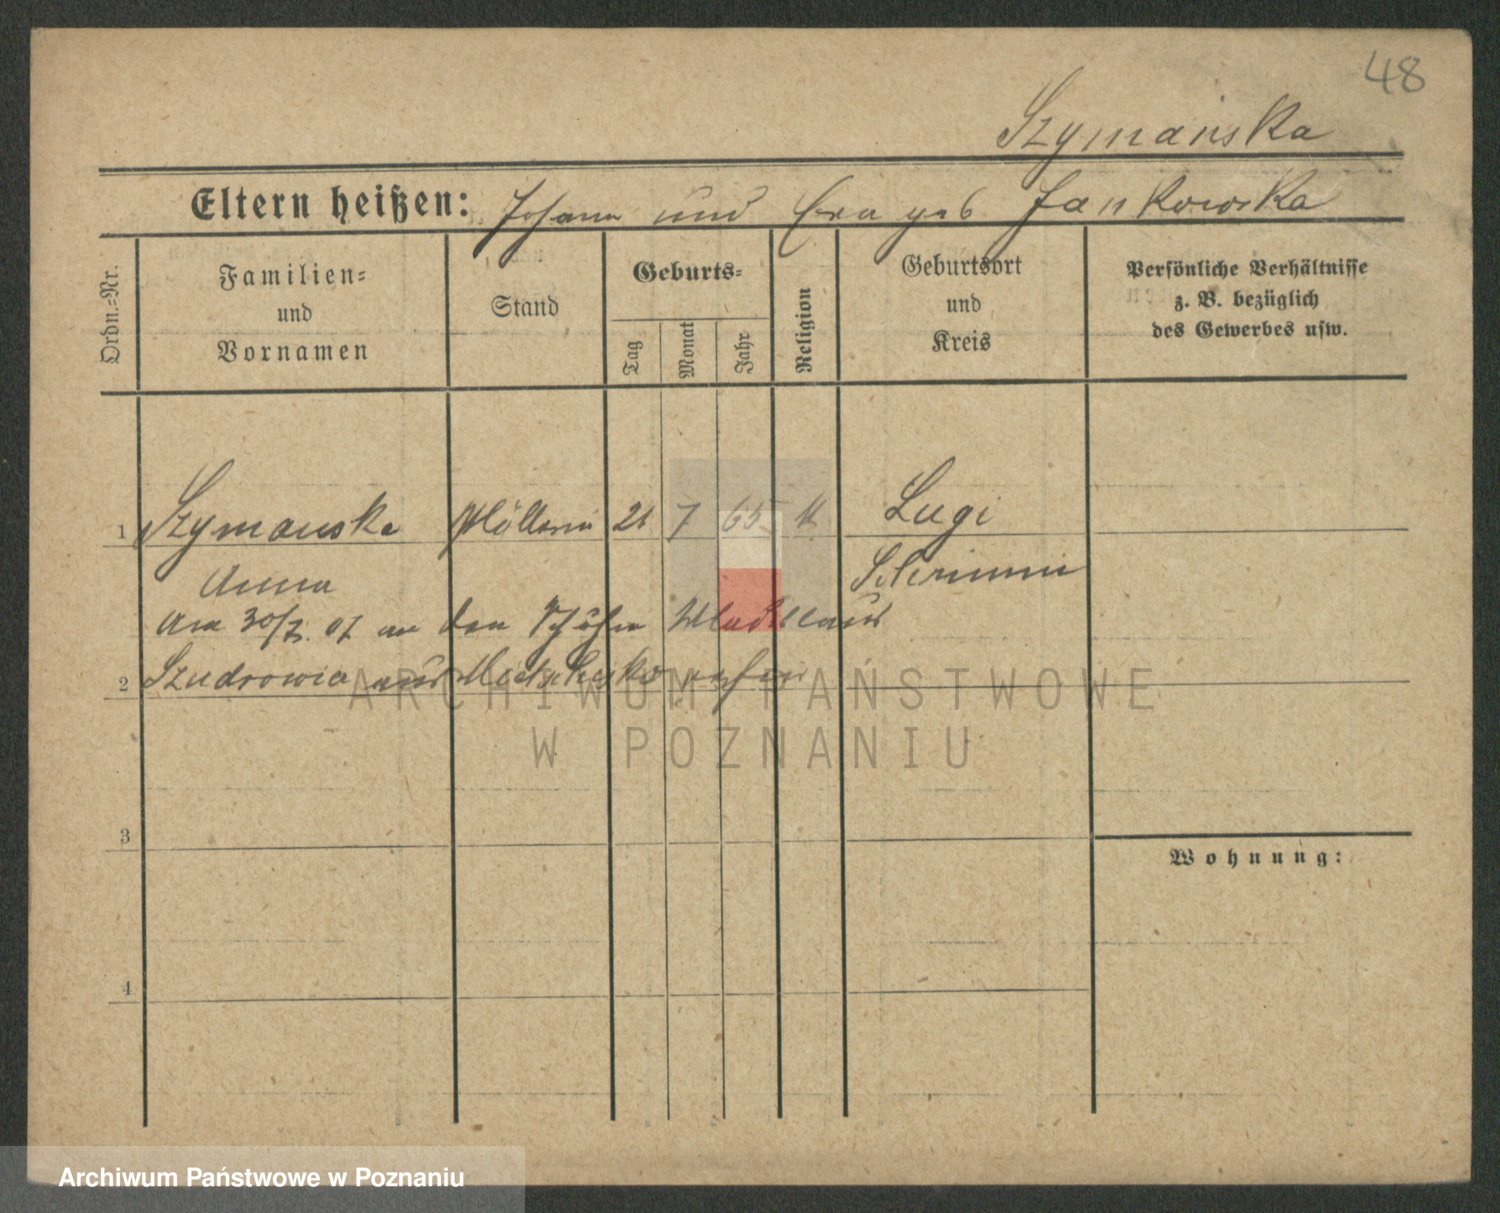 48
Szymańska
Eltern heißen: Johann und Eva geb Jankowska
Ordn.=Nr.
Familien=
und
Vornamen
Stand
Geburts=
Tag
Monat
Jahr
Religion
Geburtsort
und
Kreis
Persönliche Verhältnisse
z. B. bezüglich
des Gewerbes usw.
1 Szymanska 21 7 65 k Lugi
Anna Schrimm
Am 30/7. 07 an den Wladislaus
2 Szudrowicz aus
3
4
Wohnung:
ARCHIWUM PAŃSTWOWE
W POZNANIU
Archiwum Państwowe w Poznaniu